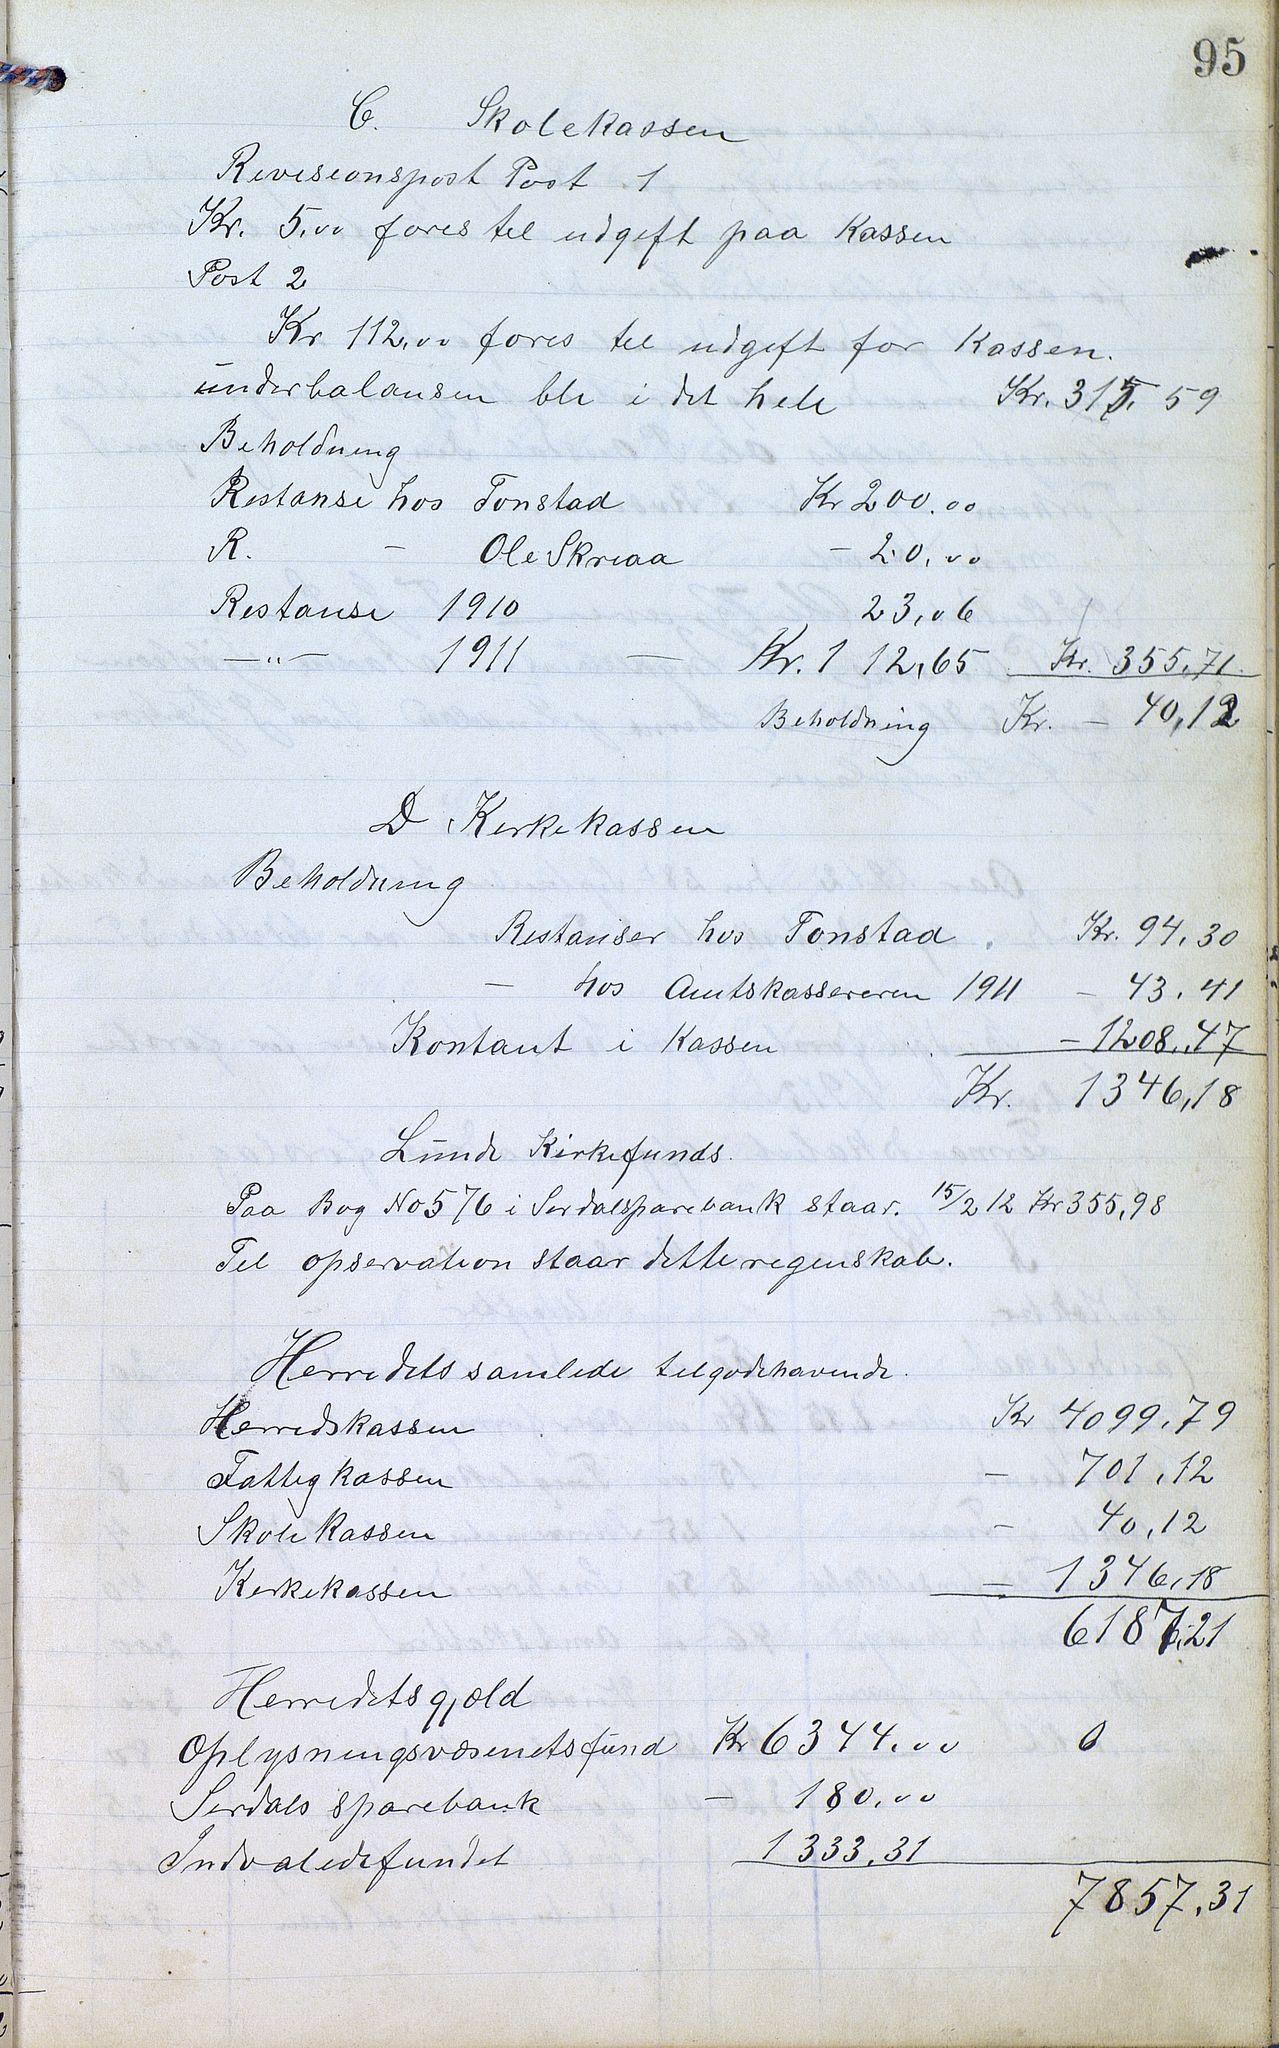 95
C. Skolekassen
Revisionspost Post 1
Kr. 5.00 føres til udgift paa Kassen
Post 2
Kr 112,00 føres til udgift for Kassen.
underbalansen ble i det hele Kr. 315,59
Beholdning
Restanse hos Tonstad Kr 200.00
R. - Ole Skreaa - 20,00
Restanse 1910 23,06
—"— 1911 — Kr. 112,65 Kr. 355,71
Beholdning Kr. - 40,12
D. Kirkekassen
Beholdning
Restanser hos Tonstad. Kr. 94,30
- hos Amtskassereren 1911 - 43.41
Kontant i Kassen - 1208,47
Kr. 1346,18
Lunde Kirkefunds.
Paa Bog No 576 i Serdalsparebank staar. 15/2 12 Kr 355,98
Til opservation staar dette regenskab.
Herredets samlede tilgodehavende.
Herredskassen Kr 4099,79
Fattigkassen - 701,12
Skolekassen - 40,12
Kirkekassen - 1346,18
6187,21
Herredetsgjæld
Oplysningsvæsenetsfund Kr 6344.00 0
Serdals sparebank - 180,00
Indvalidefundet 1333,31
7857,31